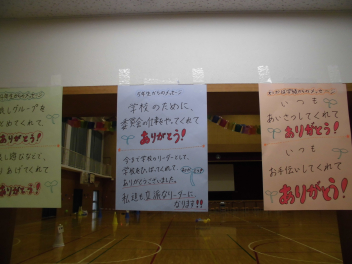 年生からのメッセージ
グループを
とめてくれて
ありがとう!
ありがとう!
5年生からのメッセージ
学校のために、
委員会の仕事をやってくれて
ありがとう!
今まで学校のリーダーとして、
学校をひっぱってくれて、
ありがとうございました。
私達も立派なリーダーに
なります!!
いつも
あいさつしてくれて
ありがとう!
いつも
お手伝いしてくれて
ありがとう!